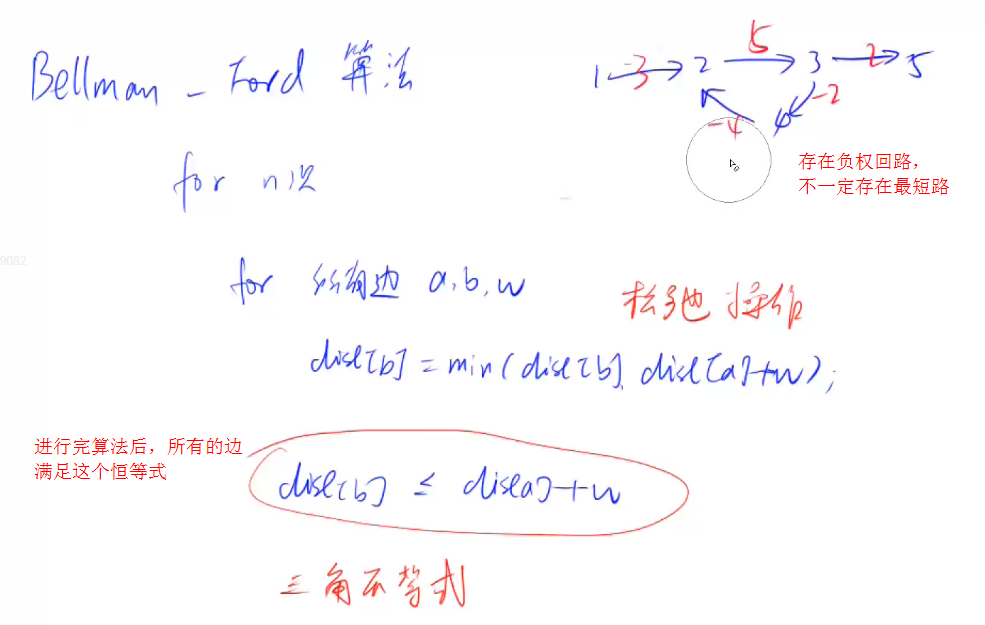 Bellman - Ford 算法
1 3 2 5 3 2 5
-2
-4 4
存在负权回路，
不一定存在最短路
for n次
9082
for 所有边 a,b,w
松弛操作
dist[b] = min(dist[b], dist[a]+w);
进行完算法后，所有的边
满足这个恒等式
dist[b] ≤ dist[a]+w
三角不等式